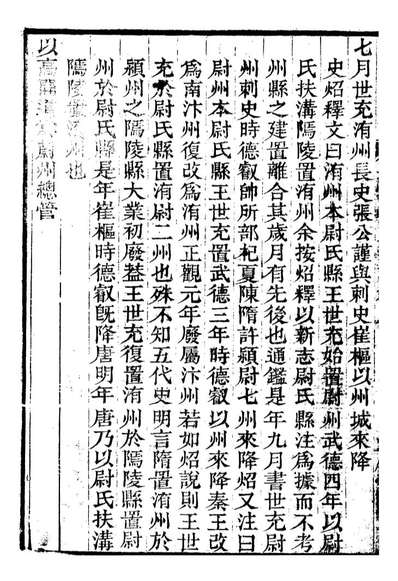 七月世充洧州長史張公謹與刺史崔樞以州城來降
史炤釋文曰洧州本尉氏縣王世充始置尉州武德四年以尉
氏扶溝隔陵置洧州余按炤釋以新志尉氏縣注爲據而不考
州縣之建置離合其歲月有先後也通鑑是年九月書世充尉
州刺史時德叡帥所部杞夏陳隋許潁尉七州來降炤又曰
尉州本尉氏縣王世充置武德三年時德叡以州來降秦王改
爲南汴州復改爲洧州正觀元年廢屬汴州若如炤說則王世
充於尉氏縣置洧尉二州也殊不知五代史明言隋置洧州於
潁州之隔陵縣大業初廢葢王世充復置洧州於隔陵縣置尉
州於尉氏縣是年崔樞時德叡旣降唐明年唐乃以尉氏扶溝
隔陵置洧州也
以高滿政爲蔚州總管